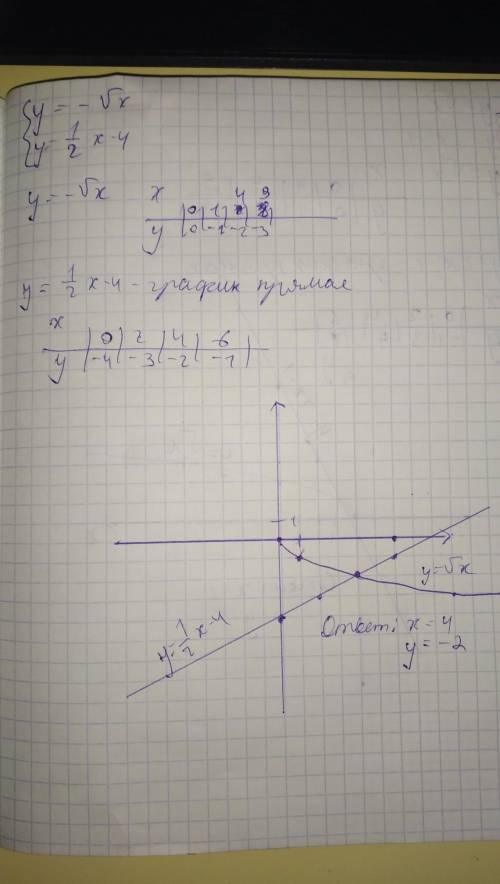 { y = - √x
{ y = 1/2 x - 4
y = - √x
x 4 9
0 | 1 |
y 0 | -1 | -2 | -3
y = 1/2 x - 4 - график прямая
x | 0 | 2 | 4 | 6
y | -4 | -3 | -2 | -1 |
1
y = √x
y = 1/2 x - 4
Ответ: x = 4
y = -2